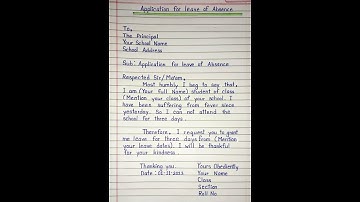 Application for leave of Absence
To,
The Principal
Your School Name
School Address
Sub: Application for leave of Absence
Respected Sir/Ma'am,
Most humbly, I beg to say that,
I am (Your full Name) student of class
(Mention your class) of your school. I
have been suffering from fever since
yesterday. So I can not attend the
school for three days.
Therefore, I request you to grant
me leave for three days from (Mention
your leave dates). I will be thankful
for your kindness.
Thanking you. Yours Obediently
Date: 01-11-2022 Your Name
Class
Section
Roll No